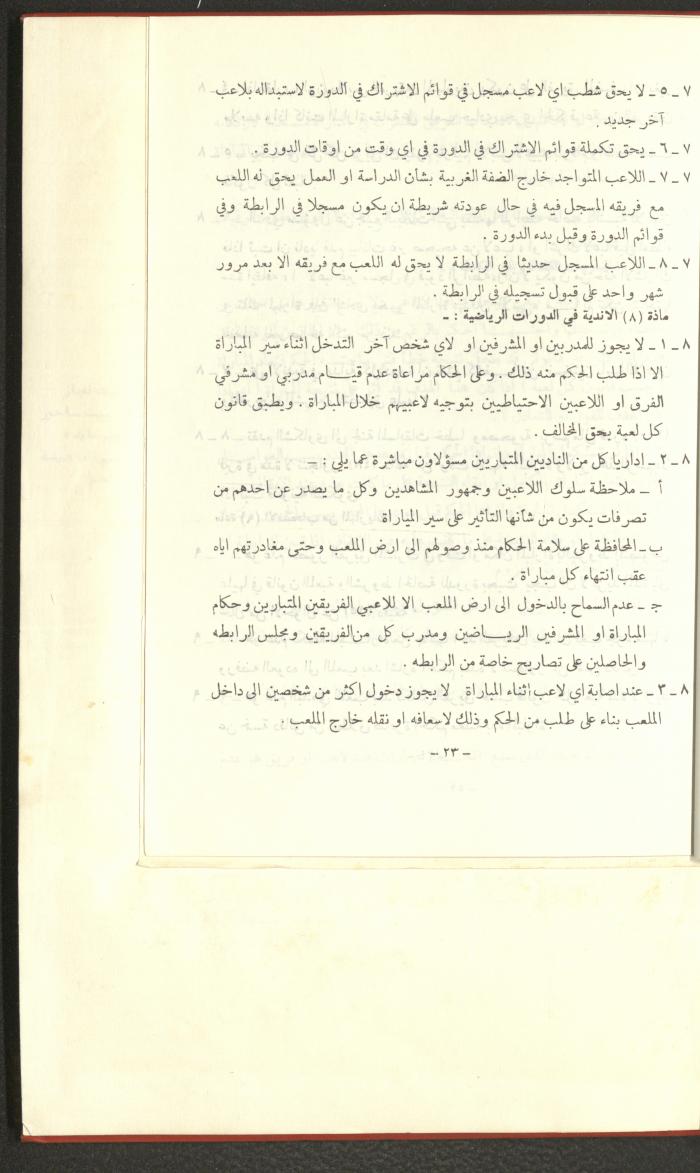 ٧ ـ ٥ ـ لا يحق شطب اي لاعب مسجل في قوائم الاشتراك في الدورة لاستبداله بلاعب
آخر جديد .
٧ ـ ٦ ـ يحق تكملة قوائم الاشتراك في الدورة في اي وقت من اوقات الدورة .
٧ ـ ٧ ـ اللاعب المتواجد خارج الضفة الغربية بشأن الدراسة او العمل يحق له اللعب
مع فريقه المسجل فيه في حال عودته شريطة ان يكون مسجلا في الرابطة وفي
قوائم الدورة وقبل بدء الدورة .
٧ ـ ٨ ـ اللاعب المسجل حديثا في الرابطة لا يحق له اللعب مع فريقه الا بعد مرور
شهر واحد على قبول تسجيله في الرابطة .
مادة (٨) الاندية في الدورات الرياضية : ـ
٨ ـ ١ ـ لا يجوز للمدربين او المشرفين او لاي شخص آخر التدخل اثناء سير المباراة
الا اذا طلب الحكم منه ذلك . وعلى الحكام مراعاة عدم قيام مدربي او مشرفي
الفرق او اللاعبين الاحتياطيين بتوجيه لاعبيهم خلال المباراة . ويطبق قانون
كل لعبة بحق المخالف .
٨ ـ ٢ ـ اداريا كل من الناديين المتباريين مسؤلاون مباشرة عما يلي : ـ
أ ـ ملاحظة سلوك اللاعبين وجمهور المشاهدين وكل ما يصدر عن احدهم من
تصرفات يكون من شأنها التأثير على سير المباراة
ب ـ المحافظة على سلامة الحكام منذ وصولهم الى ارض الملعب وحتى مغادرتهم اياه
عقب انتهاء كل مباراة .
ج ـ عدم السماح بالدخول الى ارض الملعب الا للاعبي الفريقين المتبارين وحكام
المباراة او المشرفين الرياضين ومدرب كل من الفريقين ومجلس الرابطه
والحاصلين على تصاريح خاصة من الرابطه .
٨ ـ ٣ ـ عند اصابة اي لاعب اثناء المباراة لا يجوز دخول اكثر من شخصين الى داخل
الملعب بناء على طلب من الحكم وذلك لاسعافه او نقله خارج الملعب .
ـ ٢٣ ـ